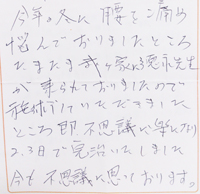 今年の冬に 腰を痛め
悩んでおりましたところ
たまたま我が家に 先生
が来られておりましたので
施していただきました
ところ即不思議に楽になり
2、3日で完治いたしました
今も不思議に思っております。